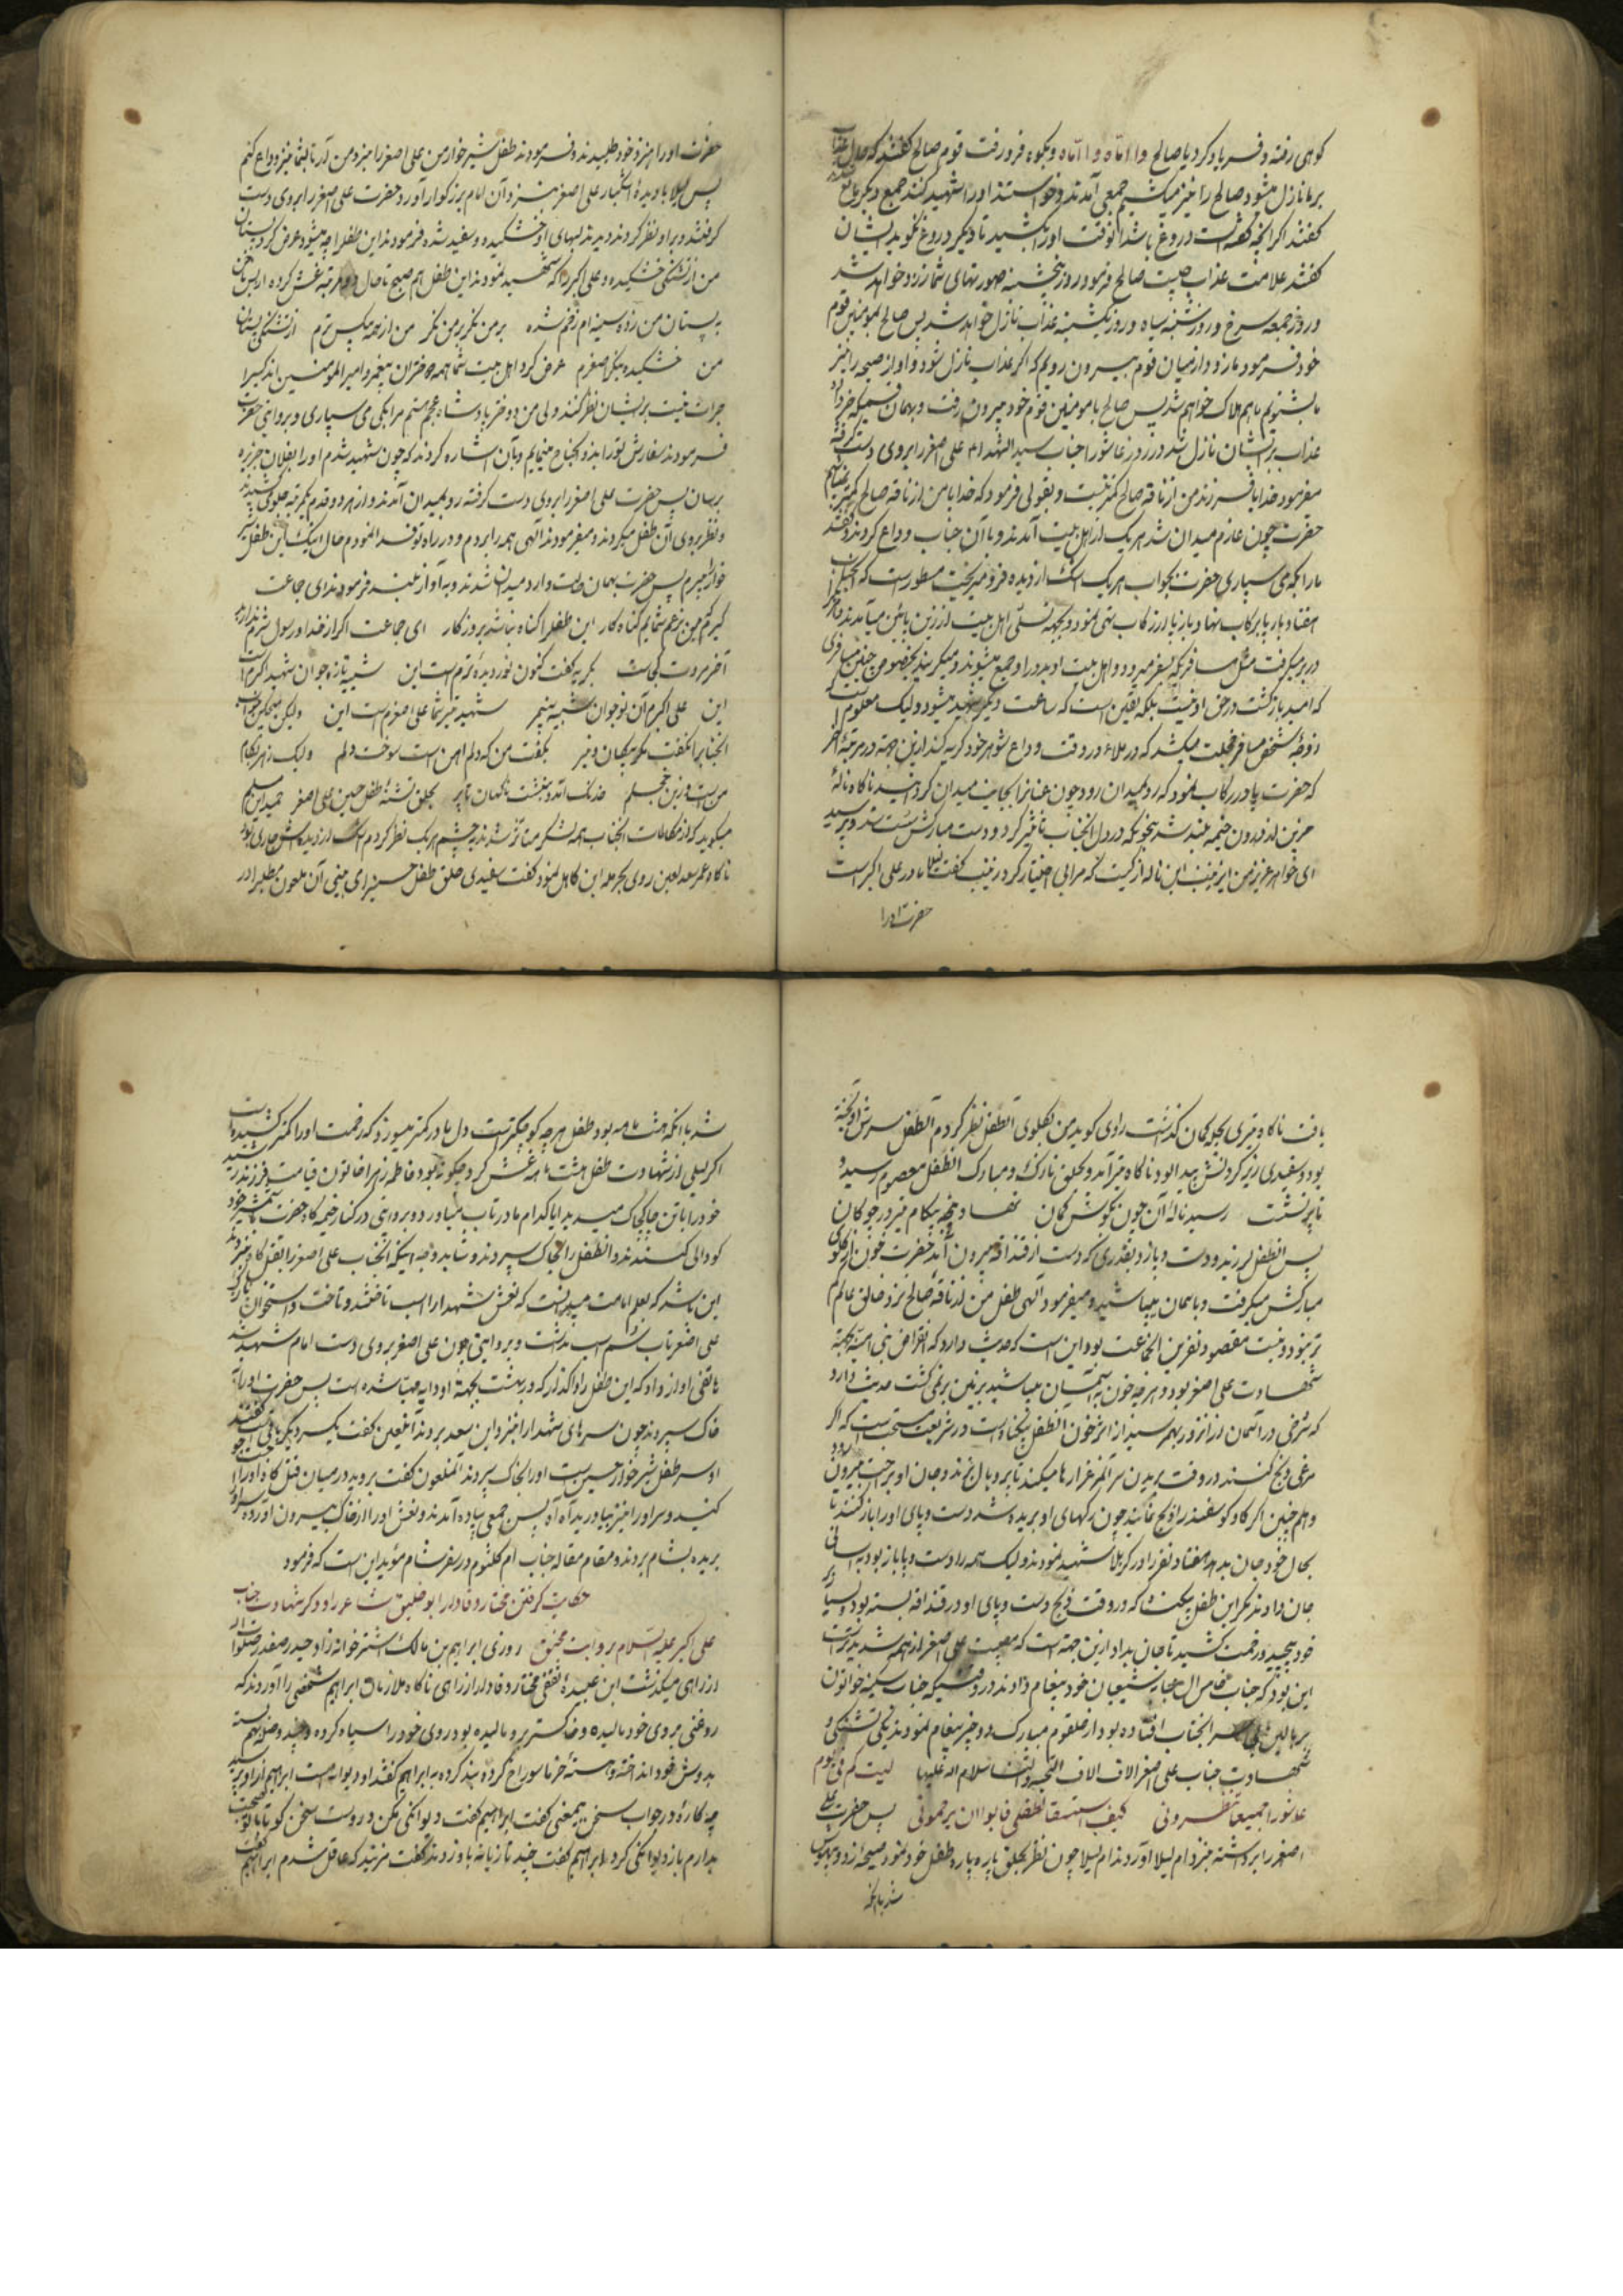 کوهی رفته و فریاد کرد یا صالح وا اماه وا اماه و بکوه فرو رفت قوم صالح گفتند که حال عذاب
بر ما نازل میشود صالح را نیز میکشیم جمعی آمدند و خواستند او را شهید کنند جمع دیگر مانع
گفتند اگر آنچه گفته است دروغ باشد آنوقت او را بکشید تا دیگر دروغ نگوید ایشان
گفتند علامت عذاب چیست صالح فرمود روز پنجشنبه صورتهای شما زرد خواهد شد
و روز جمعه سرخ و روز شنبه سیاه و روز یکشنبه عذاب نازل خواهد شد پس صالح بمومنین قوم
خود فرمود ما زود از میان قوم بیرون رویم که اگر عذاب نازل شود و آواز صیحه را نیز
ما بشنویم ما هم هلاک خواهیم شد پس صالح با مومنین قوم خود بیرون رفت و بهمان قسمیکه خبر داد
عذاب بر ایشان نازل شد در روز عاشورا جناب سید الشهداء علی اصغر را بروی دست گرفته
میفرمود خدایا فرزند من از ناقه صالح کمتر نیست و بقولی فرمود که خدایا من از ناقه صالح کمتر نیستم
حضرت چون عازم میدان شد هر یک از اهل بیت آمدند و با آن جناب وداع کردند و گفتند
ما را بکه می سپاری حضرت بجواب هر یک اشک از دیده فرو میریخت مسطور است که آنجناب
هفتاد بار پا برکاب نهاد و باز پا از رکاب تهی نمود و بجهة تسلی اهل بیت از زین پائین میآمدند و خواهر
در بر میگرفت مثل مسافریکه بسفر میرود و اهل بیت او بدور او جمع میشوند و میگریند بخصوص چنین مسافری
که امید بازگشت در حق او نیست بلکه یقین است که ساعت دیگر شهید میشود ولیک معلوم است
زوجه شخص مسافر خجلت میکشد که در ملاء در وقت وداع شوهر خود گریه کند ازین جهة در مرتبه آخر
که حضرت پا در رکاب نمود که رو بمیدان رود چون عنانرا بجانب میدان گردانید ناگاه ناله
حزین از درون خیمه بلند شد بنحویکه در دل آنجناب تاثیر کرد و دست مبارکش سست شد و پرسید
ای خواهر عزیز من ای زینب این ناله از کیست که مرا بی اختیار کرد زینب گفت لیلا مادر علی اکبر است
حضرت او را
حضرت او را بنزد خود طلبیدند و فرمودند طفل شیر خوار من علی اصغر را بنزد من آر تا با شما نیز وداع کنم
پس لیلا با دیده اشکبار علی اصغر بنزد آن امام بزرگوار آورد حضرت علی اصغر را بروی دست
گرفتند و بر او نظر کردند دیدند لبهای او خشکیده و سفید شده فرمودند این طفل را چه میشود عرض کرد پستان
من از تشنگی خشکیده و علی اکبر را که شهید نمودند این طفل هم صبح تا حال دو مرتبه غش کرده از بس ناخن
به پستان من زده سینه ام زخم شده بر من نگر بر من نگر من از همه بیکس ترم از تشنگی پستان
من خشکیده بنگر اصغرم عرض کرد اهل بیت شما همه دختران پیغمبر و امیر المومنین اند کسیرا
جرات نیست بر ایشان نظر کنند ولی من دختر پادشاه عجم هستم مرا بکی می سپاری و بروایتی حضرت
فرمودند سفارش تو را به ذو الجناح مینمایم و بآن اشاره کردند که چون شهید شدم او را بفلان جزیره
برسان پس حضرت علی اصغر را بروی دست گرفته رو بمیدان آمدند و از هر دو قدم یکمرتبه
و نظر بروی آن طفل میکردند و میفرمودند الهی همه را بردم و در راه تو فدا نمودم حال اینک این طفل
خوار میبرم پس حضرت بهمان حالت وارد میدان شدند و به آواز بلند فرمودند ای جماعت
گیرم که من بزعم شما گناه کار این طفل را گناه نباشد بروزگار ای جماعت اگر از خدا و رسول شرم ندارید
آخر مروت کجاست بگریه گفت کنون نور دیده ترم است این شبیه تازه جوان شهید اکبرم است
این علی اکبرم آن نوجوان شبیه پیغمبر شهید تیر شما علی اصغرم است این
من است و زین خجلم خدنگ آمد و بنشست ناگهان تا پر بحلق تشنه طفل حسین علی اصغر حمید ابن مسلم
میگوید که از مکالمات آنجناب همه لشکر متاثر شدند بچشم هر یک نظر کردم اشک از دیدهاش جاری بود
ناگاه عمر سعد لعین روی بحرمله ابن کاهل نمود گفت سفیدی حلق طفل حسین را می بینی آن ملعون مطلب را در
یافت ناگاه تیری بچله کمان گذاشت راوی گوید من بگلوی آنطفل نظر کردم آنطفل سرش آویخته
بود و سفیدی زیر گردنش پیدا بود ناگاه تیر آمد و بحلق نازک و مبارک آنطفل معصوم رسید و
تا پر نشست رسید ناله آن چون بگوش کمان نهاد پنجه بیکام تیر در جو کان
پس آنطفل لرزید و دست و پا زد بقدری که دست از قنداقه بیرون آمد حضرت خون از گلوی
مبارکش میگرفت و باسمان میپاشید و میفرمود الهی طفل من از ناقه صالح نزد خالق عالم کم
تر نبود و نیست مقصود نفرین آنجماعت بود این است که حدیث دارد که انقراض بنی امیه بجهة
شهادت علی اصغر بود و هر چه خون به آسمان میپاشید بر زمین بر نمی گشت حدیث دارد
که سرخی در آسمان از آنروز بهم رسید از اثر خون آنطفل بیگناه است در شریعت مستحب است که اگر
مرغی ذبح کنند در وقت بریدن سر آنمرغ را رها میکنند تا پر و بال بزند و جان او براحت بیرون رود
و همچنین اگر گاو گوسفند را ذبح نمایند چون رگهای او بریده شد دست و پای او را باز کنند تا
بحال خود جان بدهد هفتاد نفر را در کربلا شهید نمودند و لیک همه را دست و پا باز بود به آسانی
جان دادند مگر این طفل بیگناه که در وقت ذبح دست و پای او در قنداقه بسته بود و بسیار
خود پیچید و زحمت کشید تا جان بداد ازین جهة است که مصیبت علی اصغر از همه شدید تر است
این بود که جناب خامس آل عبا به شیعیان خود پیغام دادند در وقتیکه جناب سکینه خواتون
بر بالین آنجناب افتاده بود از حلقوم مبارک دو چیز پیغام نمودند یکی تشنگی و
شهادت جناب علی اصغر الاف الاف التحیة و الثنا سلام الله علیها لیت کم فی یوم
عاشورا جمیعا تنظرونی کیف استسقا لطفلی فابوا ان یرحمونی پس حضرت علی
اصغر را برداشته بنزد ام لیلا آوردند ام لیلا چون نظر بحلق پاره پاره طفل خود نمود صیحه زد و بیهوش
شد با آنکه
شد با آنکه هشت ماهه بود طفل هر چه کوچکتر است دل مادر کمتر میسوزد که زحمت او را کمتر کشیده است
اگر لیلی از شهادت طفل هشت ماهه غش کرد چگونه بود فاطمه زهرا خاتون قیامت فرزند رشید
خود را با تن چاک چاک میدید ایا کدام مادر تاب میآورد و بروایتی در کنار خیمه گاه حضرت بشمشیر خود
گودالی کندند و آنطفل را بخاک سپردند و شاید وجه اینکه آنجناب علی اصغر را بقتلگاه نبردند
این باشد که بعلم امامت میدانست که نعش شهدا را اسب تاختند و تاخت و استخوان
علی اصغر تاب سم اسب نداشت و بروایتی چون علی اصغر بروی دست امام شهید شد
هاتفی آواز داد که این طفل را واگذار که در بهشت بجهة او دایه مهیا شده است پس حضرت او را
خاک سپردند چون سرهای شهدا را بنزد ابن سعد بردند آن لعین گفت یک سر دیگر باقی است گفتند
او سر طفل شیر خوار حسین است او را بخاک سپردند آنملعون گفت بروید در میان قتل گاه او را
کنید و سر او را بنزد بیاورید آه آه پس جمعی پیاده آمدند و نعش او را از خاک بیرون آورده و سر او را
بریده بشام بردند و مقام مقاله جناب ام کلثوم در سفر شام موید این است که فرمود
حکایت گرفتن مختار وفادار ابو خلیق شاعر را و ذکر شهادت جناب
علی اکبر علیه السلام بروایت محنق روزی ابراهیم بن مالک اشتر خوانه زاد حیدر صفدر صلوات الله
از راهی میگذشت ابن عبیده ثقفی مختار وفادار از راهی ناگاه ملازمان ابراهیم شخصی را آوردند که
روغنی بروی خود مالیده و خاکستر برو مالیده بود روی خود را سیاه کرده و چند وصله بهم بسته
بدوش خود انداخته و هسته خرما سوراخ کرده بند کرده به ابراهیم گفتند او دیوانه است ابراهیم از او پرسید
چه کاره در جواب سخن بیمعنی گفت ابراهیم گفت دیوانگی مکن درست سخن گو تا با تو صحبت
بدارم باز دیوانگی کرد ابراهیم گفت چند تازیانه باو زدند گفت مزنید که عاقل شدم ابراهیم گفت